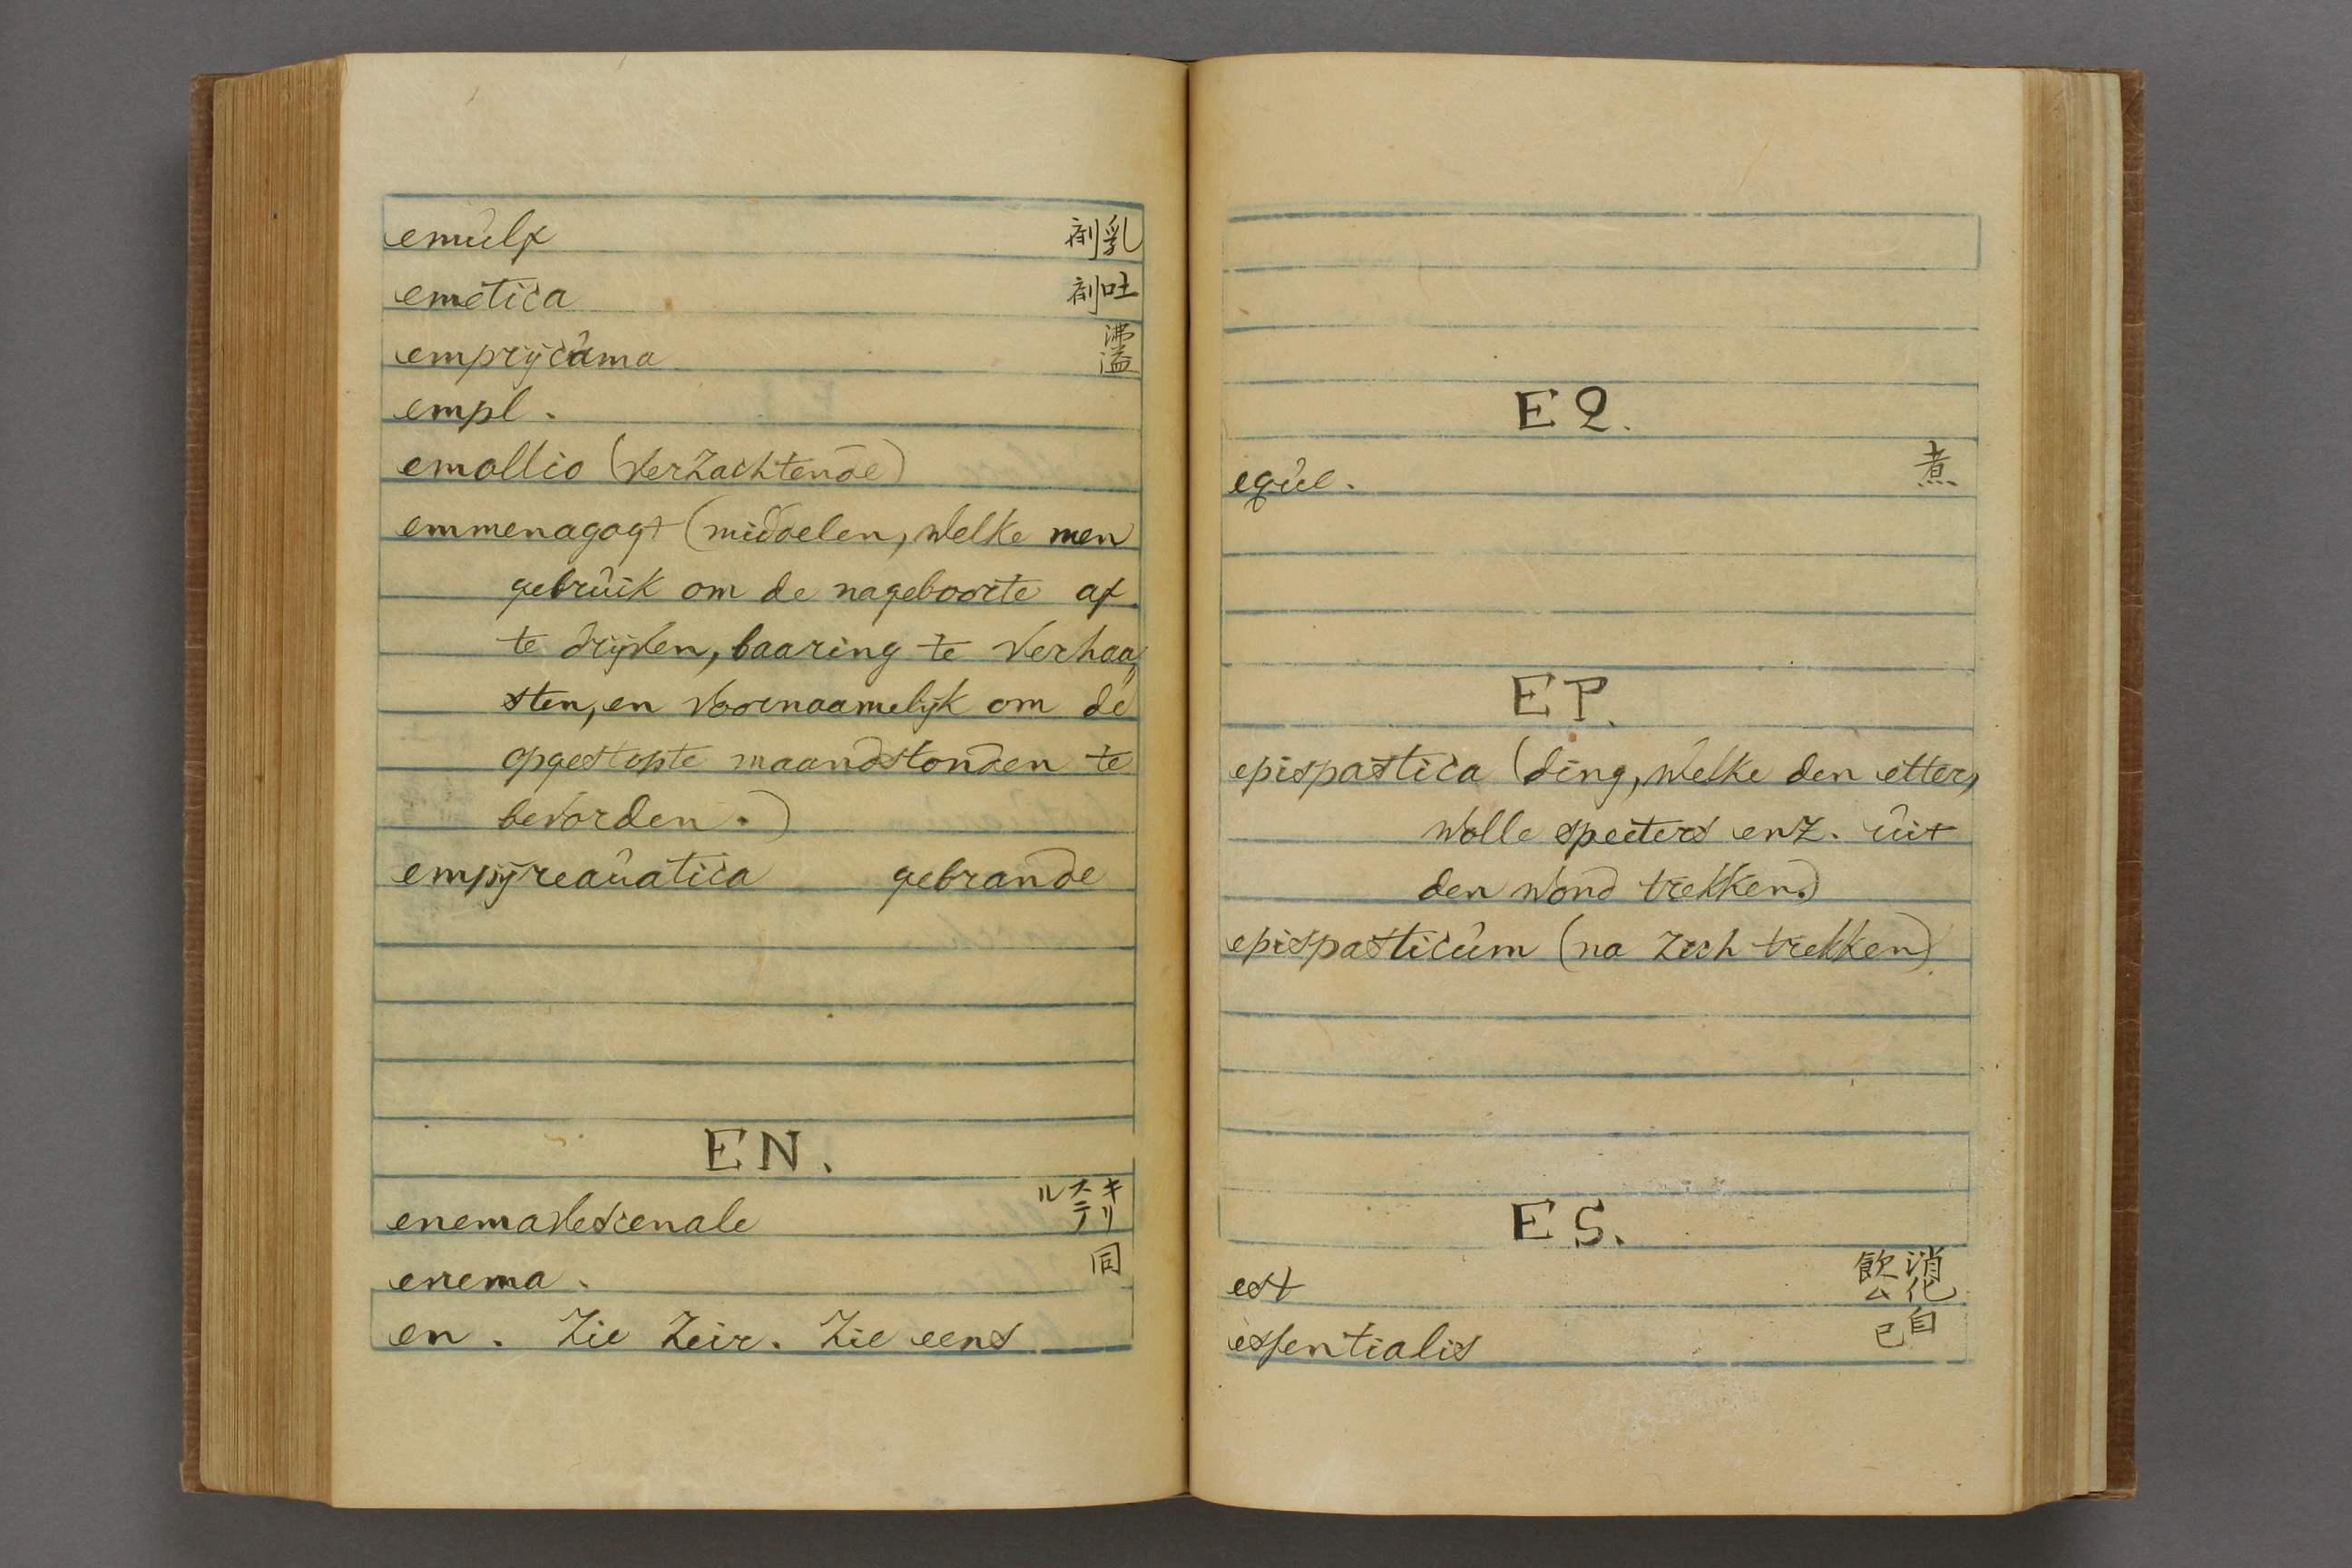 emûlf 乳剤
emetica 吐剤
emprÿcûma 沸溢
empl.
emollio (verzachtende)
emmenagogt (middelen, welke men
gebrûik om de nageboorte af
te drijven, baaring te verhaa„
sten, en voornaamelijk om de
opgestopte maandstonden te
bevorden.)
empÿreaûatica gebrande
EN.
enemavescenale キリステル
enema. 同
en. Zie Zeir. Zie eens
EQ.
eqûe. 煮
EP.
epispastica (ding, welke den etter,
wolle speeters enz. ûit
den wond trekken.)
epispasticûm (na zich trekken)
ES.
est 消化飲ム
essentialis 自己